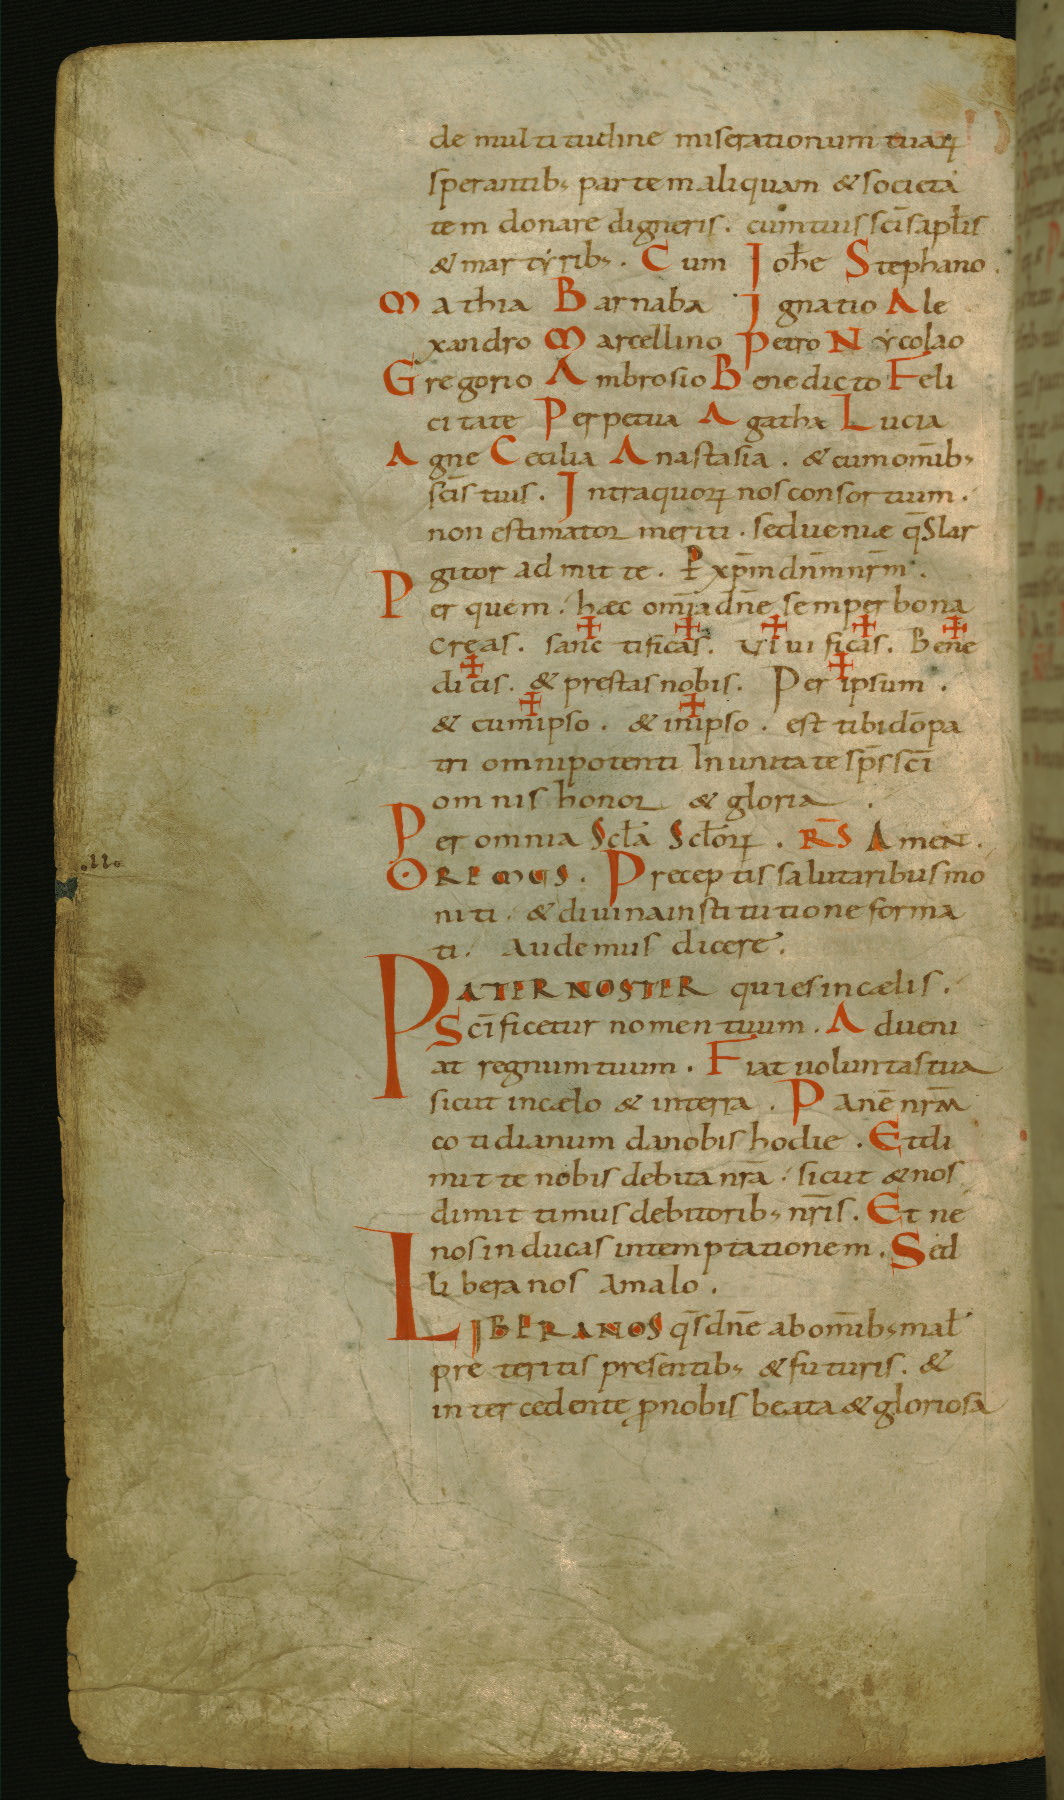 de multitudine miserationum tuaꝝ
sperantib; partem aliquam & societa
tem donare digneris . cum tuis sc̄is apl̄is
& martẏrib; . Cum Ioh̄e Stephano .
Mathia Barnaba Ignatio Ale
xandro Marcellino Petro Nẏcolao
Gregorio Ambrosio Benedicto Feli
citate Perpetua Agathæ Lucia
Agne Cecilia Anastasia . & cum om̄ib;
sc̄is tuis . Intra quoꝝ nos consortium .
non estimator meriti . sed ueniæ q̄s lar
gitor admitte . P̄ xp̄m dn̄m nr̄m .
Per quem . hæc om̄ia dn̄e semper bona
creas . sanc✝tificas . ✝ Vi✝uificas . ✝ Bene✝
di✝cis . & prestas nobis . Per ✝ ipsum .
& cum ✝ ipso . & in ✝ ipso . est tibi do̅ pa
tri omnipotenti In unitate sp̄s sc̄i
omnis honor & gloria .
Per omnia Scl̄a Scl̄orꝝ . R̄S Amen .
.22.
OREMUS . Preceptis salutaribus mo
niti . & diuina institutione forma
ti . Audemus dicere .
PATER NOSTER qui es in cælis .
Sc̄ificetur nomen tuum . Adueni
at regnum tuum . Fiat uoluntas tua
sicut in cælo & in terra . Panē nr̄m
cotidianum da nobis hodie . Et di
mitte nobis debita nr̄a . sicut & nos
dimittimus debitorib; nr̄is . Et ne
nos inducas in temptationem . Sed
libera nos Amalo .
LIBERA NOS q̄s dn̄e ab om̄ib; mal̄
preteritis presentib; & futuris . &
intercedente ꝓ nobis beata & gloriosa